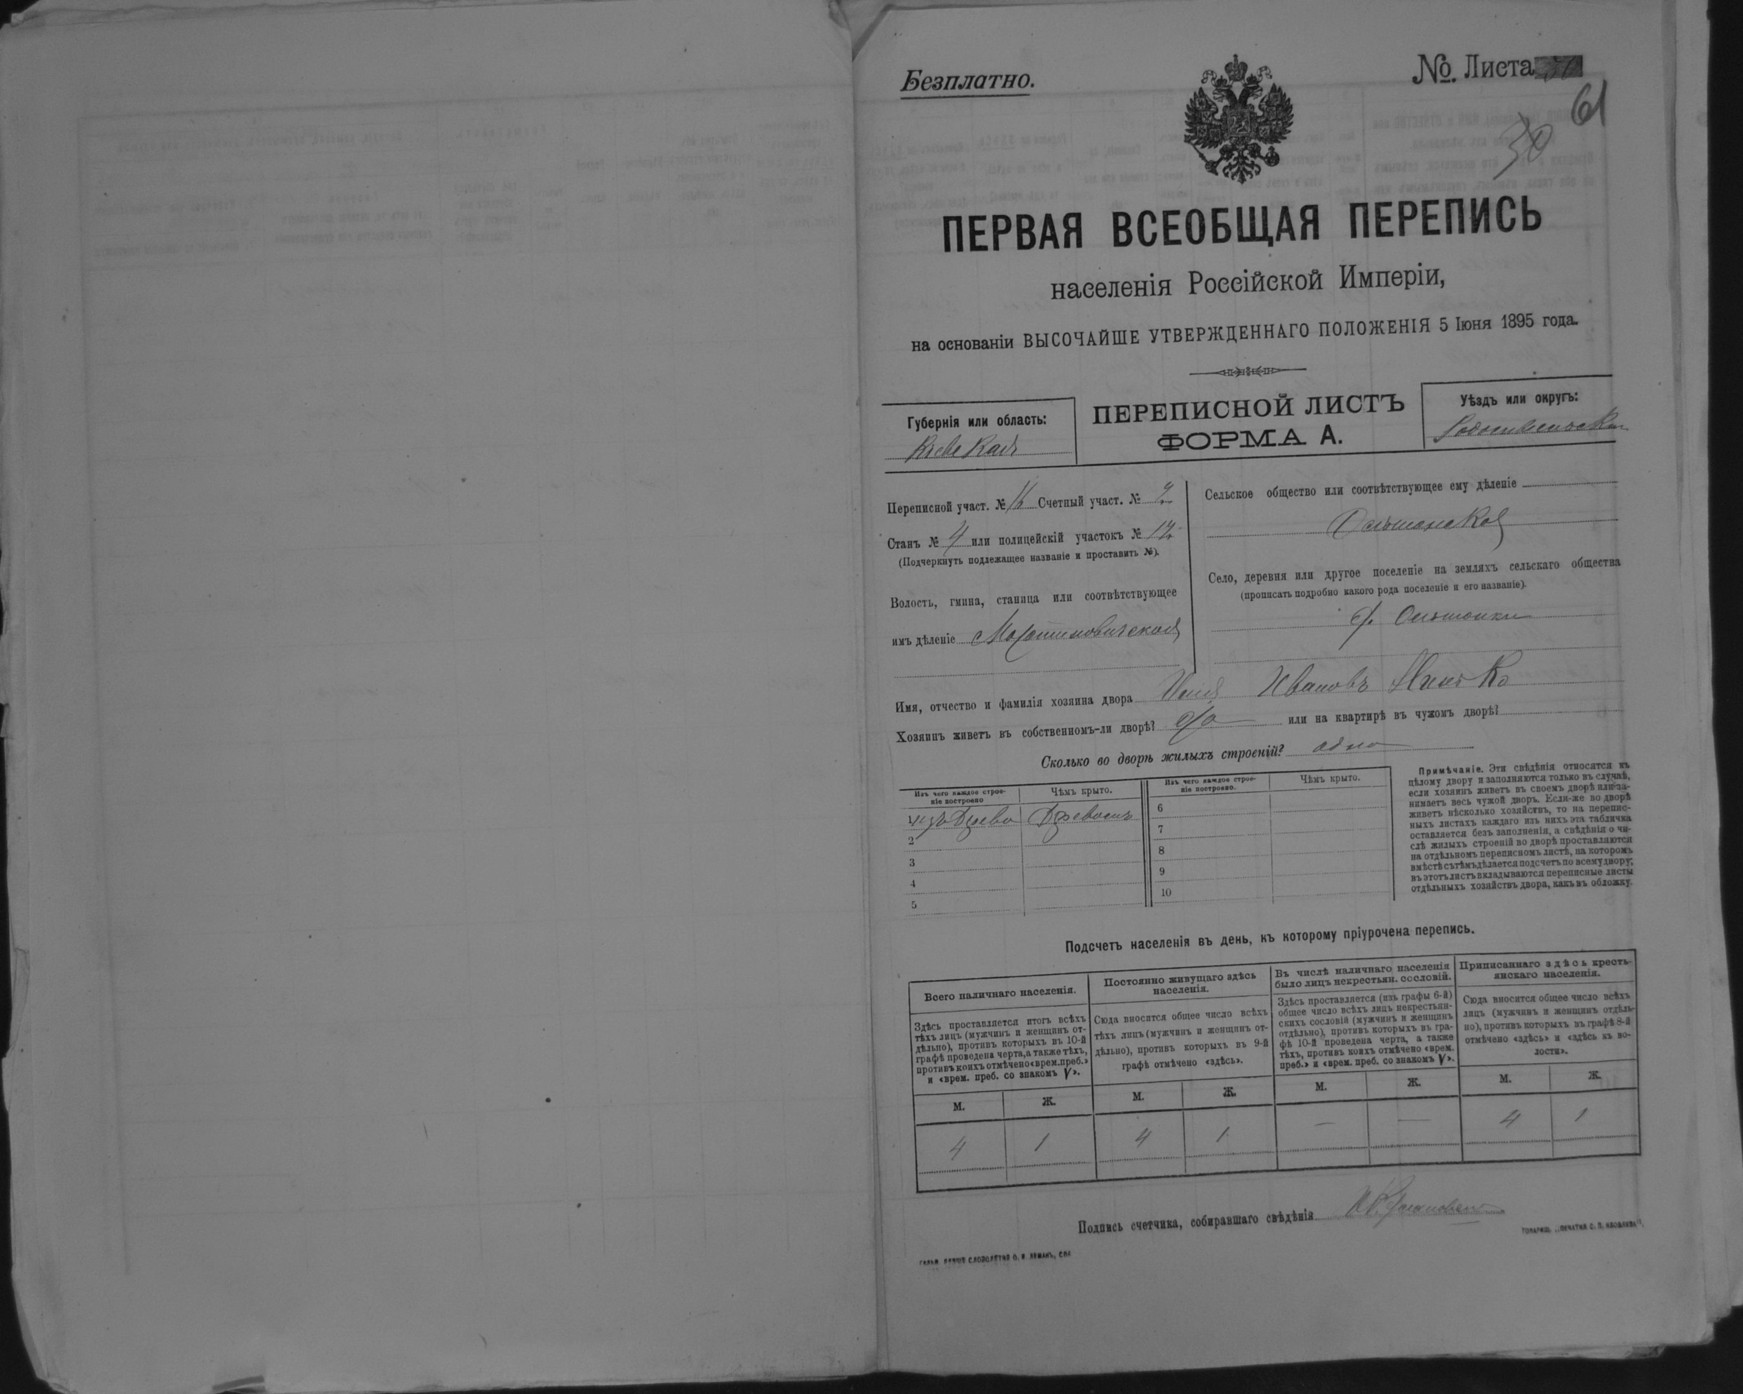 Безплатно.
№. Листа
61
30
ПЕРВАЯ ВСЕОБЩАЯ ПЕРЕПИСЬ
населенія Россійской Имперіи,
на основаніи ВЫСОЧАЙШЕ УТВЕРЖДЕННАГО ПОЛОЖЕНІЯ 5 Іюня 1895 года.
Губернія или область:
Кіевская
ПЕРЕПИСНОЙ ЛИСТЪ
ФОРМА А.
Уѣздъ или округъ:
Переписной участ. № 16 Счетный участ. № 2
Станъ № 4 или полицейскій участокъ № 12
(Подчеркнуть подлежащее названіе и проставить №).
Волость, гмина, станица или соотвѣтствующее
имъ дѣленіе
Сельское общество или соотвѣтствующее ему дѣленіе
Село, деревня или другое поселеніе на земляхъ сельскаго общества
(прописать подробно какого рода поселеніе и его названіе).
Имя, отчество и фамилія хозяина двора Ивановъ
Хозяинъ живетъ въ собственномъ-ли дворѣ? да или на квартирѣ въ чужомъ дворѣ?
Сколько во дворѣ жилыхъ строеній? одно
Изъ чего каждое строе-
ніе построено
Чѣмъ крыто.
Изъ чего каждое строе-
ніе построено.
Чѣмъ крыто.
1 изъ дерева
2
3
4
5
6
7
8
9
10
Примѣчаніе. Эти свѣдѣнія относятся къ
цѣлому двору и заполняются только въ случаѣ,
если хозяинъ живетъ въ своемъ дворѣ или за-
нимаетъ весь чужой дворъ. Если-же во дворѣ
живетъ нѣсколько хозяйствъ, то на перепис-
ныхъ листахъ каждаго изъ нихъ эта табличка
оставляется безъ заполненія, а свѣдѣнія о чи-
слѣ жилыхъ строеній во дворѣ проставляются
на отдѣльномъ переписномъ листѣ, на которомъ
вмѣстѣ съ тѣмъ дѣлается подсчетъ по всему двору;
въ этотъ листъ вкладываются переписные листы
отдѣльныхъ хозяйствъ двора, какъ въ обложку.
Подсчетъ населенія въ день, къ которому пріурочена перепись.
Всего наличнаго населенія.
Здѣсь проставляется итогъ всѣхъ
тѣхъ лицъ (мужчинъ и женщинъ от-
дѣльно), противъ которыхъ въ 10-й
графѣ проведена черта, а также тѣхъ,
противъ коихъ отмѣчено «врем. преб.»
и «врем. преб. со знакомъ V».
М. Ж.
4 1
Постоянно живущаго здѣсь
населенія.
Сюда вносится общее число всѣхъ
тѣхъ лицъ (мужчинъ и женщинъ от-
дѣльно), противъ которыхъ въ 9-й
графѣ отмѣчено «здѣсь».
М. Ж.
4 1
Въ числѣ наличнаго населенія
было лицъ некрестьян. сословій.
Здѣсь проставляется (изъ графы 6-й)
общее число всѣхъ лицъ некрестьян-
скихъ сословій (мужчинъ и женщинъ
отдѣльно), противъ которыхъ въ гра-
фѣ 10-й проведена черта, а также
тѣхъ, противъ коихъ отмѣчено «врем.
преб.» и «врем. преб. со знакомъ V».
М. Ж.
— —
Приписаннаго здѣсь кресть-
янскаго населенія.
Сюда вносится общее число всѣхъ
лицъ (мужчинъ и женщинъ отдѣль-
но), противъ которыхъ въ графѣ 8-й
отмѣчено «здѣсь» и «здѣсь въ во-
лости».
М. Ж.
4 1
Подпись счетчика, собиравшаго свѣдѣнія